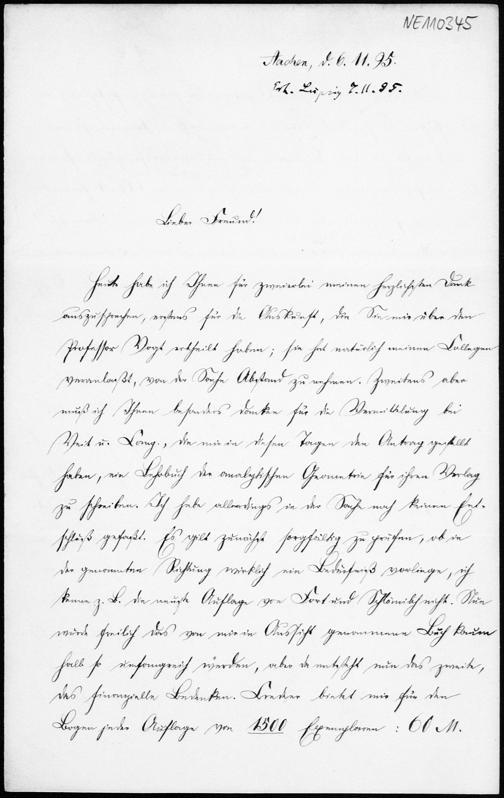 NE110345
Aachen, d. 6. 11. 95.
Erh. Leipzig 7. 11. 95.
Lieber Freund!
Heute habe ich Ihnen für zweierlei meinen herzlichsten Dank
auszusprechen, erstens für die Auskunft, die Sie mir über den
Professor Vogt ertheilt haben; sie hat natürlich meinen Collegen
veranlaßt, von der Sache Abstand zu nehmen. Zweitens aber
muß ich Ihnen besonders danken für die Vermittelung bei
Veit u. Comp., die mir in diesen Tagen den Antrag gestellt
haben, ein Lehrbuch der analytischen Geometrie für ihren Verlag
zu schreiben. Ich habe allerdings in der Sache noch keinen Ent-
schluß gefaßt. Es gilt zunächst sorgfältig zu prüfen, ob in
der genannten Richtung wirklich ein Bedürfniß vorliege, ich
kenne z. B. die neuste Auflage von Fort und Schlömilch nicht. Nun
würde freilich das von mir in Aussicht genommene Buch kaum
halb so umfangreich werden, aber da entsteht nun das zweite,
das finanzielle Bedenken. Credner bietet mir für den
Bogen jeder Auflage von 1500 Exemplaren : 60 M.